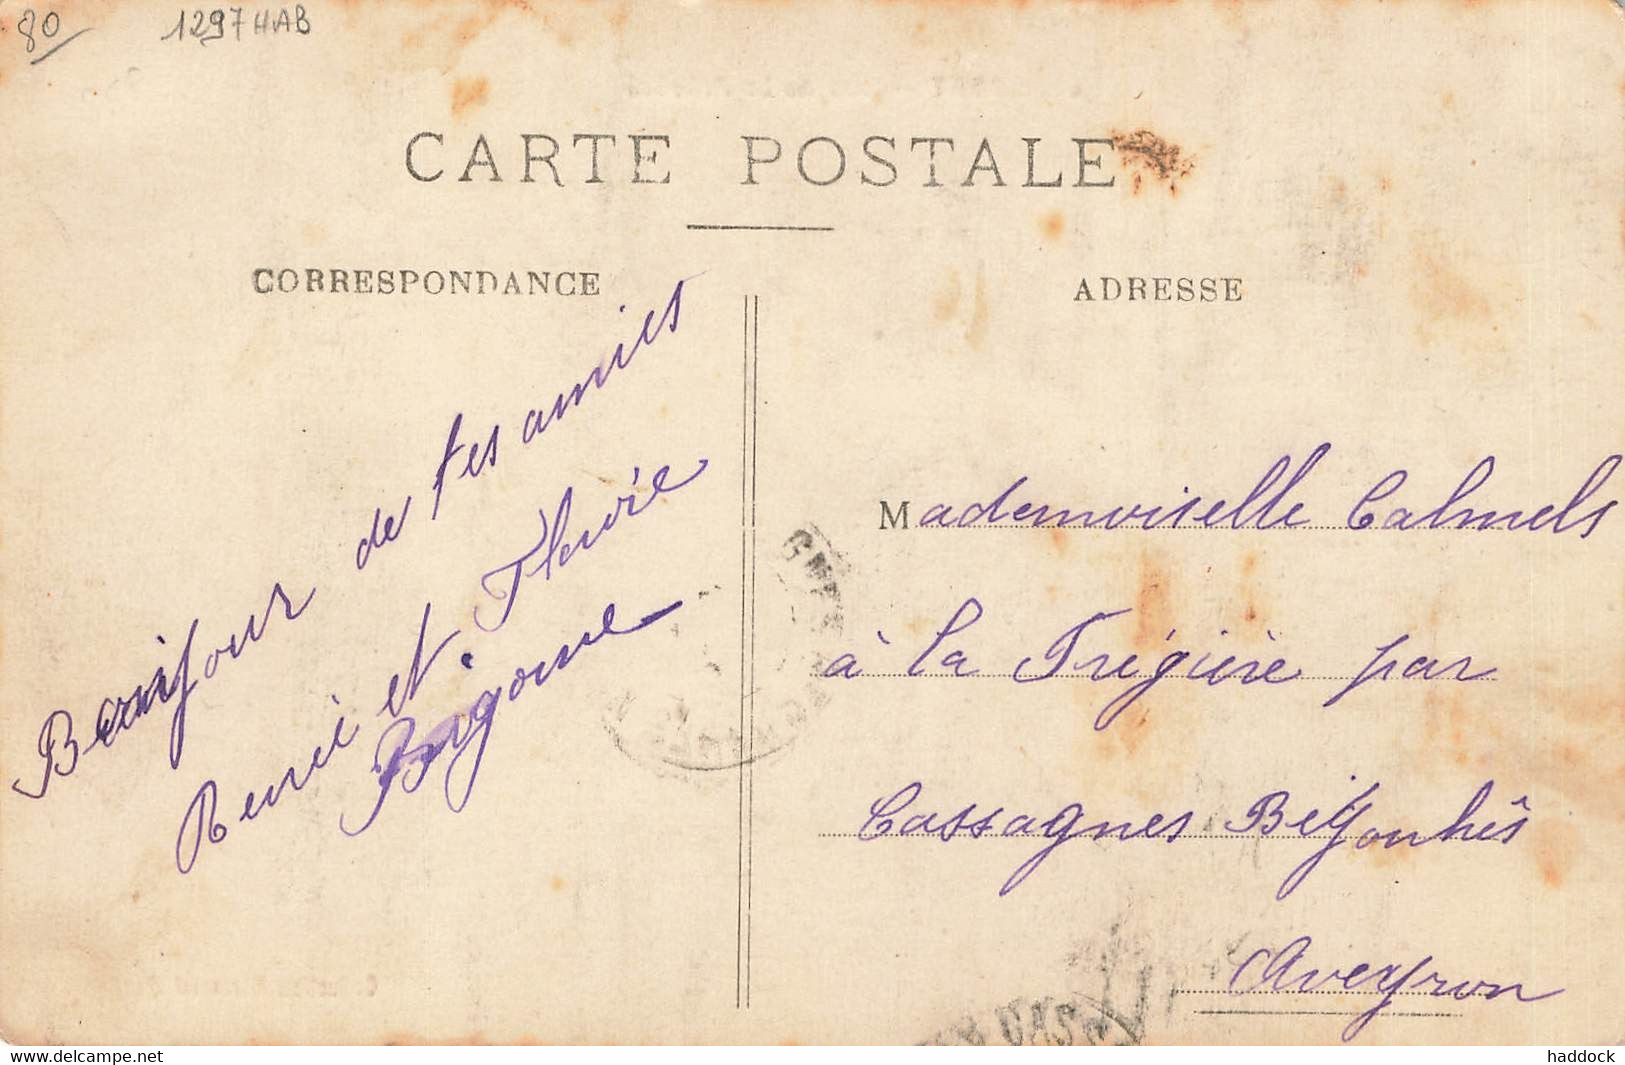 80
1297 HAB
CARTE POSTALE
CORRESPONDANCE
Bonjour de tes amies
René et Flavie
ADRESSE
Mademoiselle Calmels
à la Frégière par
Cassagnes Bégonhès
Aveyron
www.delcampe.net
haddock